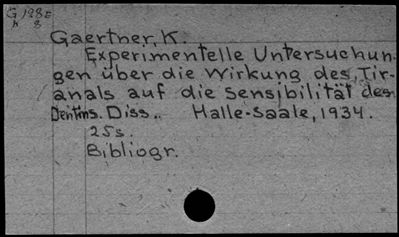 G 198E
h 8
Gaertner, K.
Experimentelle Untersuchun-
gen über die Wirkung des Tir-
anals auf die Sensibilität des
Dentins. Diss.. Halle-Saale, 1934.
25s.
Bibliogr.